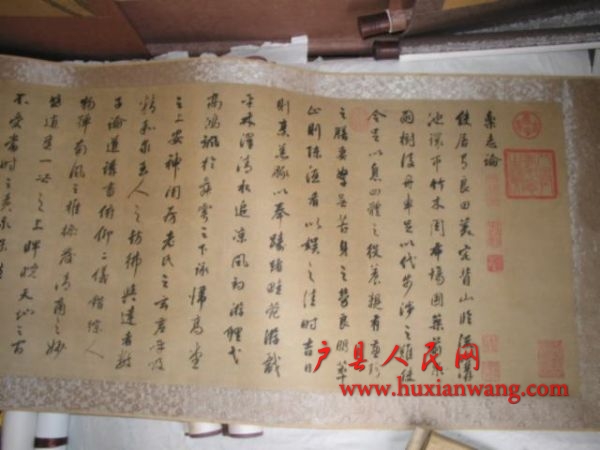 樂志論
使居有良田美宅背山臨流溝
池環帀竹木周布場圃築前果
園樹後舟車足以代步涉之難使
令足以息四體之役養親有兼珍
之膳妻孥無苦身之勞良朋萃
止則陳酒肴以娛之佳時吉日
則烹羔豚以奉躊躇畦苑游戲
平林濯清水追涼風釣游鯉弋
高鴻諷於舞雩之下詠歸高堂
之上安神閨房思老氏之玄虛呼吸
精和求至人之彷彿與達者數
子論道講書俯仰二儀錯綜人
物彈南風之雅操發清商之妙
曲逍遙一世之上睥睨天地之間
不受當時之責永保
户县人民网
www.huxianwang.com